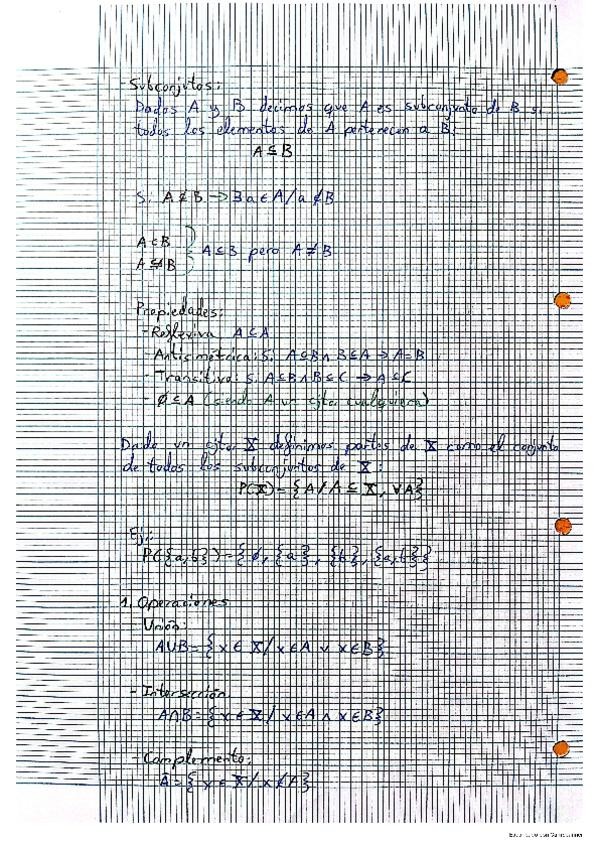 - Subconjutos:
Dados A y B decimos que A es subconjunto de B si
todos los elementos de A pertenecen a B:
A ⊆ B
Si A ⊈ B → ∃ a ∈ A / a ∉ B
A ⊂ B
A ⊊ B } A ⊆ B pero A ≠ B
Propiedades:
- Reflexiva A ⊆ A
- Antisimétrica: Si A ⊆ B ∧ B ⊆ A → A = B
- Transitiva: Si A ⊆ B ∧ B ⊆ C → A ⊆ C
- ∅ ⊆ A (siendo A un cjto. cualquiera)
Dado un cjto. X definimos partes de X como el conjunto
de todos los subconjuntos de X:
P(X) = { A / A ⊆ X, ∀A }
Ej.:
P({a,b}) = { ∅, {a}, {b}, {a,b} }
1. Operaciones
Unión:
A∪B = { x ∈ X / x ∈ A ∨ x ∈ B }
- Intersección:
A∩B = { x ∈ X / x ∈ A ∧ x ∈ B }
- Complemento:
Ā = { x ∈ X / x ∉ A }